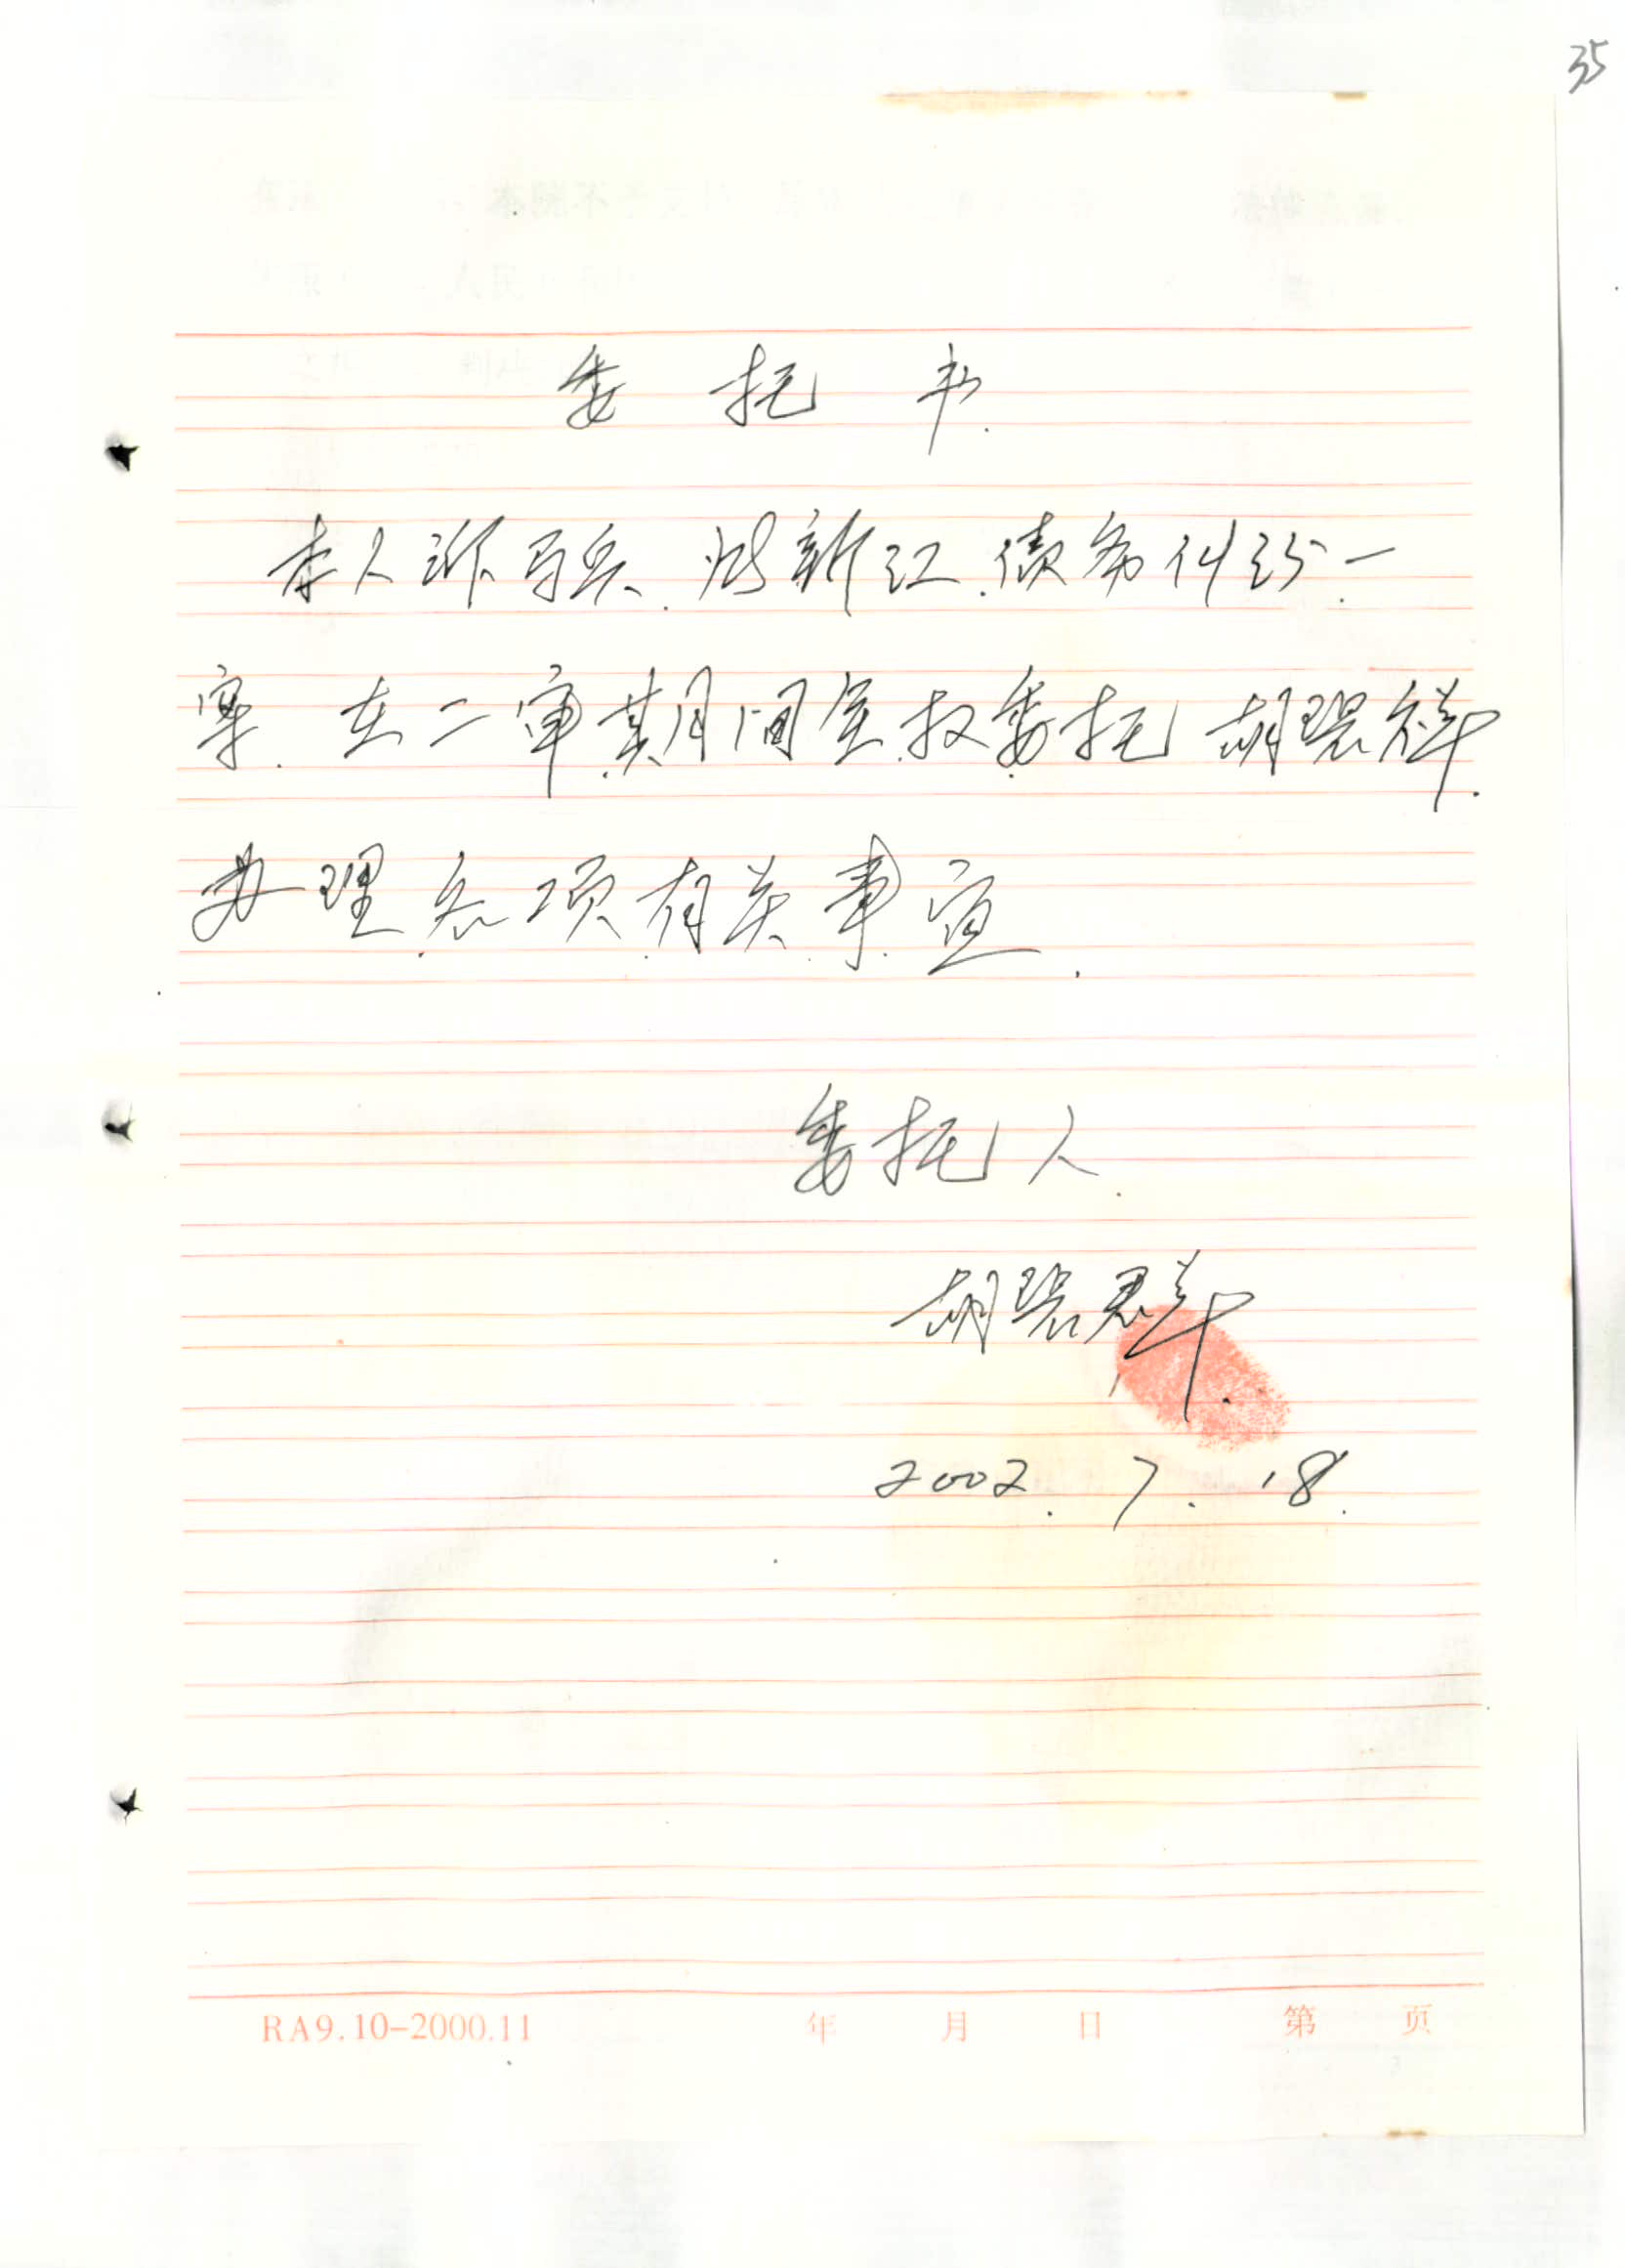 35
委托书
本人诉马兵、 新江债务纠纷一
案 在二审期间全权委托 胡琨祥
办理各项有关事宜
委托人
胡碧群
2002. 7. 18.
RA9.10-2000.11 年 月 日 第 页